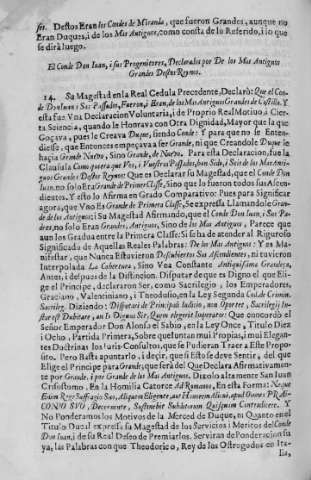 fes. Destos Eran los Condes de Miranda, que fueron Grandes, aunque no
Eran Duques, i de los Mas Antiguos, como consta de lo Referido, i lo que
se dirà luego.
El Conde Don Iuan, i sus Progenitores, Declarados por De los Mas Antiguos
Grandes Destos Reynos.
14. Su Magestad en la Real Cedula Precedente, Declarò: Que el Con-
de Don Iuan i Sus Passados, Fueron, i Eran, de los Mas Antiguos Grandes de Castilla. Y
esta fue Vna Declaracion Voluntaria, i de Proprio Real Motiuo, i Cier-
ta Sciencia, quando le Honrava con Otra Dignidad, Mayor que la que
Goçava, pues le Creava Duque, siendo Conde: Y para que no se Enten-
diesse, que Entonces empeçava a ser Grande, ni que Creandole Duque le
haçia Grande Nuevo, Sino Grande, de Nuevo. Para esta Declaracion, fue la
Clausula Como quiera que Vos, i Vuestros Passados, son Sido, i Sois de los Mas Anti-
guos Grandes Destos Reynos: Que es Declarar su Magestad, que el Conde Don
Iuan, no solo Era Grande de Primera Classe, Sino que lo fueron todos sus Ascen-
dientes. Y esto lo Afirma en Grado Comparativo: Pues para Significar
agora, que Vno Es Grande de Primera Classe, Se expressa Llamandole Gran-
de de los Antiguos; i Su Magestad Afirmando, que el Conde Don Iuan, i Sus Pa-
dres, no solo Eran Grandes, Antiguos, Sino de los Mas Antiguos, Parece que
aun los Gradua entre la Primera Classe: Si se ha de atender al Riguroso
Significado de Aquellas Reales Palabras: De los Mas Antiguos: Y es Ma-
nifestar, que Nunca Estuvieron Descubiertos Sus Ascendientes, ni tuvieron
Interpolada La Cobertura, Sino Vea Constante Antiquissima Grandeza,
Antes, i despues de la Distincion. Disputar de que es Digno el que Eli-
ge el Principe, declararon Ser, como Sacrilegio, los Emperadores,
Graciano, Valentiniano, i Theodosio, en la Ley Segunda Cod. de Crimin.
Sacrileg. Diziendo: Disputari de Principali Iudicio, non Oportet, Sacrilegij In-
star est Dubitare, an Is Dignus Sit, Quem elegerit Imperator: Que concordò el
Señor Emperador Don Alonso el Sabio, en la Ley Once, Titulo Diez
i Ocho, Partida Primera, Sobre que Iuntan mui Propias, i mui Elegan-
tes Doctrinas los Iuris-Consultos, que se Pudieran Traer a Este Propo-
sito. Pero Basta apuntarlo, i decir, que si Esto se deve Sentir, del que
Elige el Principe para Grande; que serà del Que Declara Afirmativamen-
te por Grande, i por Grande de los Mas Antiguos. Dixolo altamente San Iuan
Crisostomo, En la Homilia Catorce Ad Romanos, En esta Forma: Neque
Enim Rege Suffragio Suo, Aliquem Eligente, aut Hominem Alicui, apud Omnes PRÆ-
CONIO SVO, Decorante, Sustinebit Subditorum Quisquam Contradicere. Y
No Ponderamos los Motivos de la Merced de Duque, ni Quanto en el
Titulo Ducal expressa su Magestad de los Servicios i Meritos del Conde
Don Iuan, i de su Real Deseo de Premiarlos. Serviran de Ponderacion su-
ya, las Palabras con que Theodorico, Rey de los Ostrogodos en Ita-
lia,